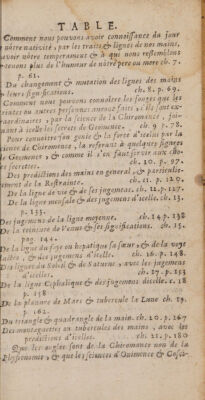 TABLE.
Comment nous pouvons avoir connoissance du jour
nôtre nativité, par les traits & lignes de nos mains,
avoir nôtre temperament & à qui nous ressemblons
tenons plus de l'humeur de nôtre pere ou mere ch. 7.
p. 61.
Du changement & mutation des lignes des mains
leurs significations. ch. 8. p. 69.
Comment nous pouvons connoître les songes que les
nuits ou autres personnes auront faits, ils sont ex-
traordinaires, par la science de la Chiromance, joi-
nant à icelle les forces de Geomance. ch. 9 p. 78.
Pour connoître son genie & la force d'iceluy par la
de Chiromance, la referant à quelques signes
de Geomance, & comme il s'en faut servir aux cho-
ses secretes. ch. 10. p. 97.
Des predictions des mains en general, & particulie-
rement de la Restrainte. ch. 11. p. 120.
De la ligne de vie & de ses jugemens. ch. 12. p. 127.
De la ligne mensale & des jugemens d'icelle. ch. 13.
p. 133.
Des jugemens de la ligne moyenne. ch. 14. p. 138
De la ceinture de Venus & ses significations. ch. 15.
pag. 144.
De la ligne du foye ou hepatique sa sœur, & de la voye
lactée, & des jugemens d'icelle. ch. 16. p. 148.
Des lignes du Soleil & de Saturne, avec les jugemens
d'icelles. ch. 17. p. 153
De la ligne Cephalique & des jugemens d'icelle. c. 18
p. 158
De la plainure de Mars & tubercule la Lune ch. 19.
p. 162.
Du triangle & quadrangle de la main. ch. 20. p. 167
Des montagnettes ou tubercules des mains, avec les
predictions d'icelles. ch. 21. p. 180
Que les ongles sont de la Chiromance non de la
Physionomie, & que les sciences d'Onimence &